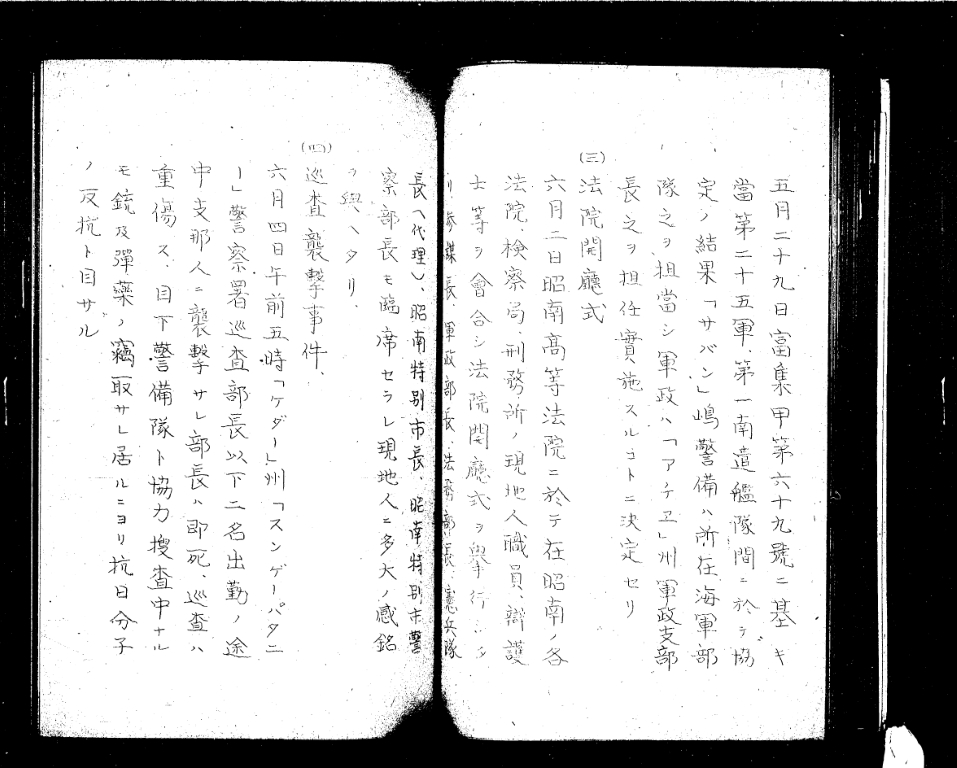 五月二十九日富集甲第六十九號ニ基キ
當第二十五軍、第一南遣艦隊間ニ於テ協
定ノ結果「サバン」嶋警備ハ所在海軍部
隊之ヲ担當シ軍政ハ「アチエ」州軍政支部
長之ヲ担任實施スルコトニ決定セリ
(三)
法院開廳式
六月二日昭南高等法院ニ於テ在昭南ノ各
法院、検察局、刑務所ノ現地人職員、辯護
士等ヲ會合シ法院開廳式ヲ擧行シタ
参謀長、軍政部長、法務部長、憲兵隊
長(代理)、昭南特別市長、昭南特別市警
察部長モ臨席セラレ現地人ニ多大ノ感銘
ヲ與ヘタリ
(四)
巡査襲撃事件、
六月四日午前五時「ケダー」州「スンゲーパタニ
ー」警察署巡査部長以下二名出勤ノ途
中支那人ニ襲撃サレ部長ハ即死、巡査ハ
重傷ス、目下警備隊ト協力捜査中ナル
モ銃及彈藥ノ竊取サレ居ルニヨリ抗日分子
ノ反抗ト目サル